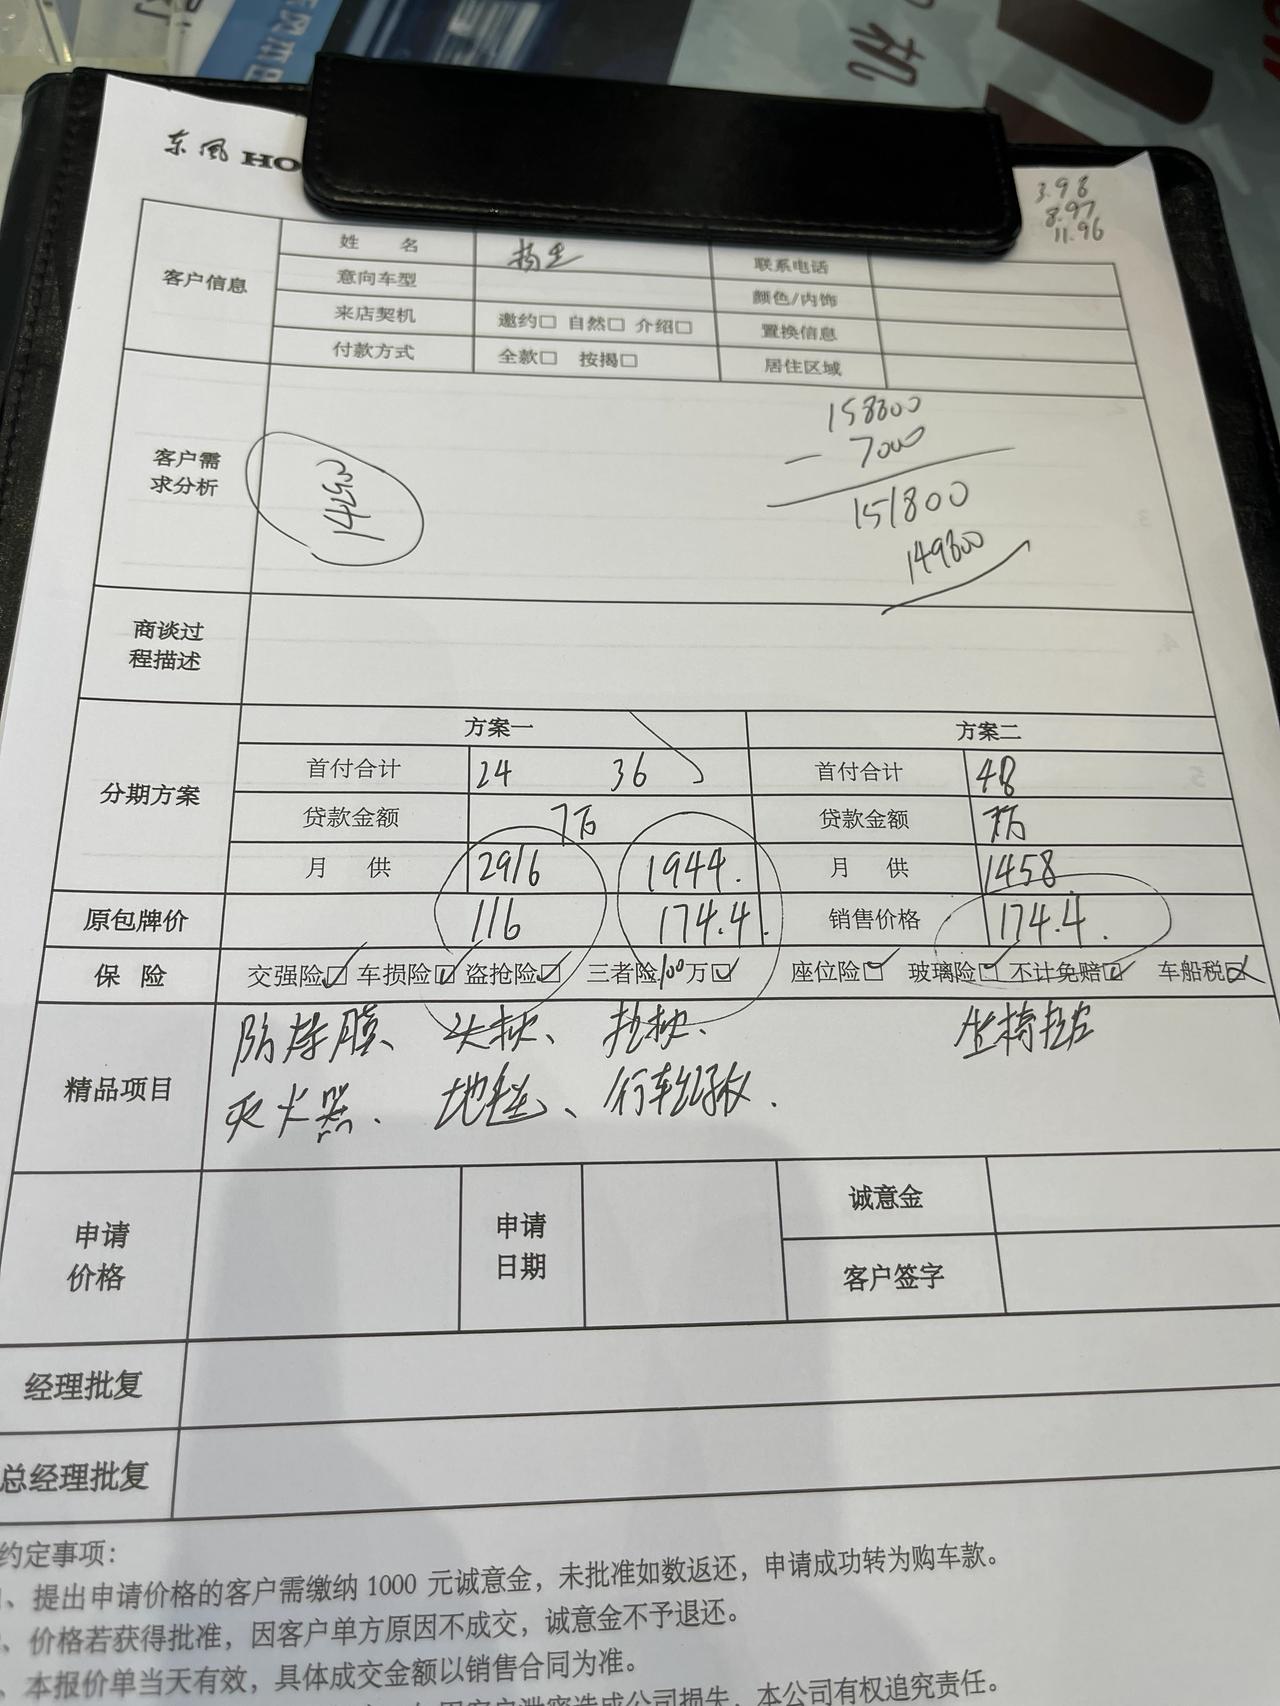 机
东風 HO
3.98
8.97
11.96
客户信息
姓 名
联系电话
意向车型
颜色/内饰
来店契机 邀约□ 自然□ 介绍□ 置换信息
付款方式 全款□ 按揭□ 居住区域
客户需求分析
158800
- 7000
151800
149800
商谈过程描述
分期方案
方案一 方案二
首付合计 24 36 首付合计 48
贷款金额 7万 贷款金额 7万
月 供 2916 1944. 月 供 1458.
原包牌价 116 174.4. 销售价格 174.4.
保 险 交强险☑ 车损险☑ 盗抢险☑ 三者险100万☑ 座位险☑ 玻璃险☑ 不计免赔☑ 车船税☑
精品项目
防爆膜、头枕、抱枕、
灭火器、地毯、行车记录仪.
申请价格
申请日期
诚意金
客户签字
经理批复
总经理批复
约定事项：
、提出申请价格的客户需缴纳 1000 元诚意金，未批准如数返还，申请成功转为购车款。
、价格若获得批准，因客户单方原因不成交，诚意金不予退还。
、本报价单当天有效，具体成交金额以销售合同为准。
造成公司损失，本公司有权追究责任。